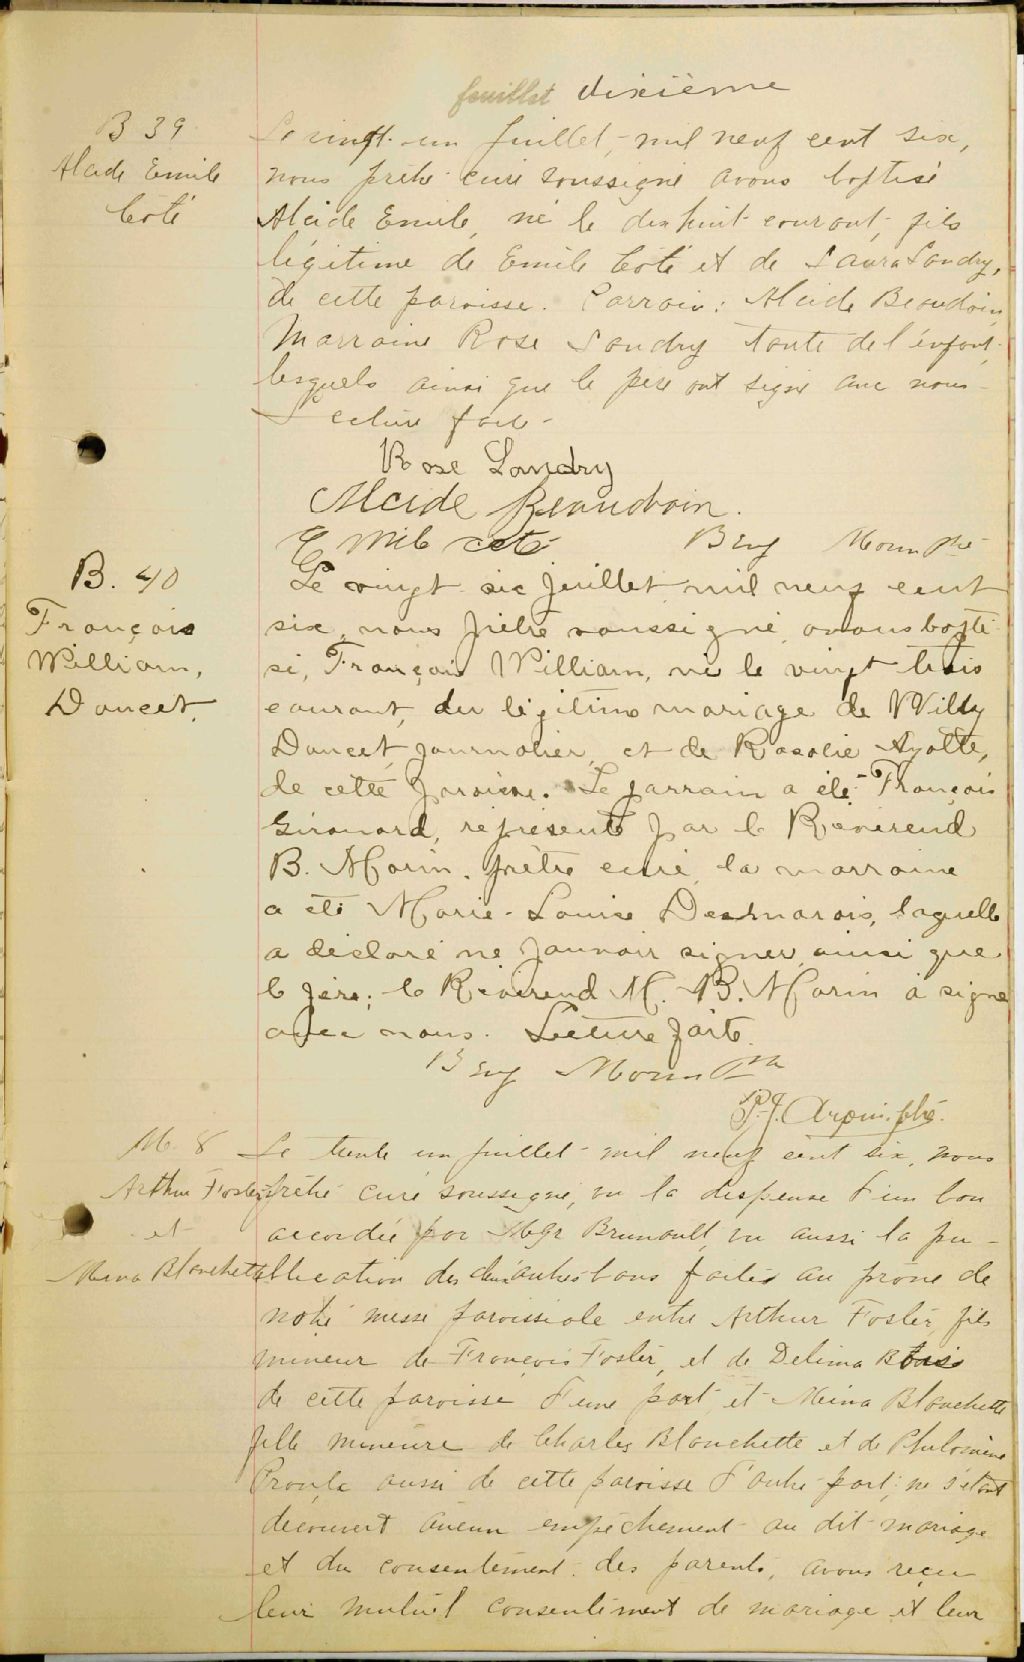 feuillet dixième
B 39
Alcide Emile
Coté
Le vingt-un juillet, mil neuf cent six,
nous prêtre curé soussigné avons baptisé
Alcide Emile, né le dix huit courant, fils
légitime de Emile Coté et de Laura Landry,
de cette paroisse. Parrain: Alcide Beaudoin,
Marraine Rose Landry tante de l'enfant,
lesquels ainsi que le père ont signé avec nous
Lecture faite-
Rose Landry
Alcide Beaudoin.
Emile coté
B Morin Ptre
B. 40
François
William,
Doucet,
Le vingt six juillet mil neuf cent
six, nous prêtre soussigné, avons bapti-
sé, François William, né le vingt trois
courant, du légitime mariage de Willy
Doucet, journalier, et de Rosalie Ayotte,
de cette paroisse. Le parrain a été François
Girouard, représenté par le Révérend
B. Morin, prêtre curé, la marraine
a été Marie-Louise Desmarais, laquelle
a déclaré ne pouvoir signer, ainsi que
le père; le Révérend M. B. Morin a signé
avec nous. Lecture faite.
B Morin Ptre
P.J. Arpin. ptre.
M. 8
Arthur Foster
et
Meina Blanchette
Le trente un juillet mil neuf cent six, nous
prêtre curé soussigné, vu la dispense d'un ban
accordée par Mgr Brunault, vu aussi la pu-
blication des deux autres bans faites au prône de
notre messe paroissiale entre Arthur Foster, fils
mineur de François Foster, et de Delima Blais
de cette paroisse d'une part, et Meina Blanchette
fille mineure de Charles Blanchette et de Philomène
Proulx aussi de cette paroisse d'autre part; ne s'étant
découvert aucun empêchement au dit mariage
et du consentement des parents, avons reçu
leur mutuel consentement de mariage et leur